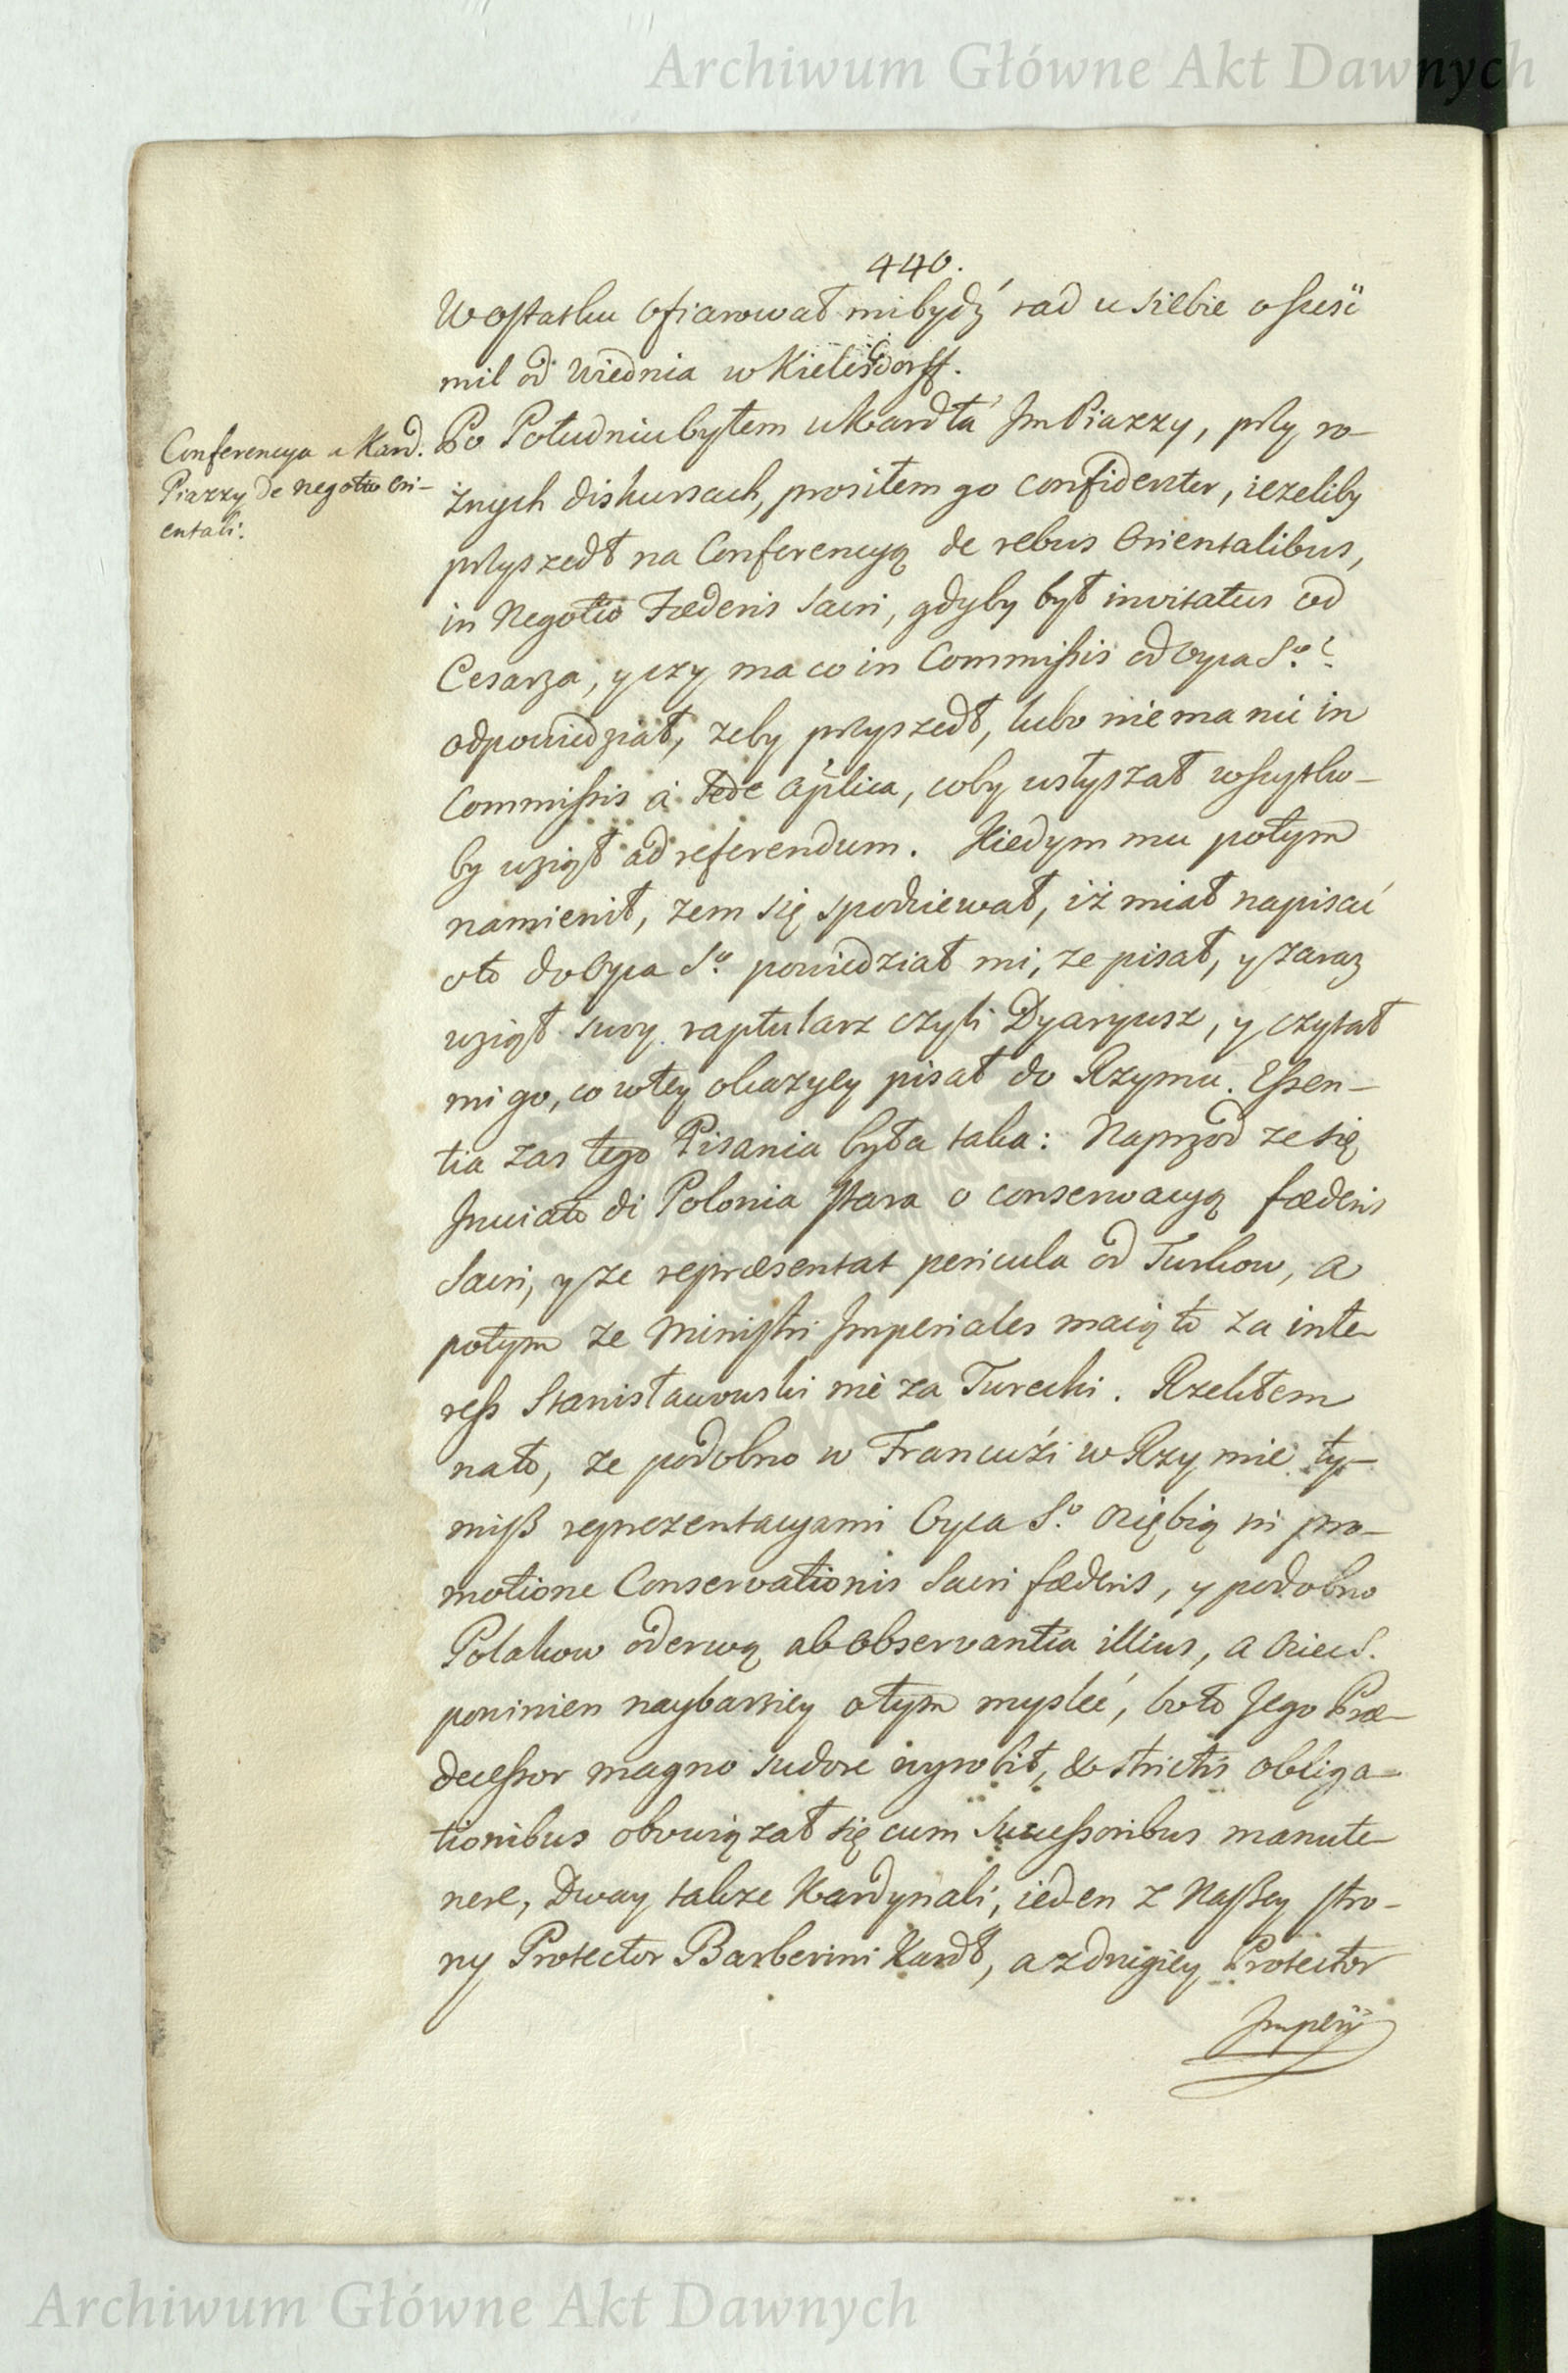 Archiwum Główne Akt Dawnych
440.
W ostatku ofiarował mi bydź rad u siebie o sześć
mil od Wiednia w Kielisdorff.
Conferencya u Kard.
Piazzy de negotio Ori-
entali.
Po Południu byłem u Kardła Jm Piazzy, przy ro-
żnych diskursach, prosiłem go confidenter, iezeliby
przyszedł na Conferencyą de rebus Orientalibus,
in Negotio Fœderis Sacri, gdyby był invitatus od
Cesarza, y czy ma co in Commissis od Oyca S.º?
odpowiedział, zeby przyszedł, lubo niema nic in
Commissis à Sede Aplica, coby usłyszał wszystko-
by wziął ad referendum. Kiedym mu potym
namienił, zem się spodziewał, iż miał napisać
oto do Oyca S.º powiedział mi, ze pisał, y zaraz
wziął swoy raptularz czyli Dyaryusz, y czytał
mi go, co w tey okazyey pisał do Rzymu. Essen-
tia zas tego Pisania była taka: Naprzod ze się
Inviato di Polonia stara o conserwacyą fœderis
Sacri, y ze repræsentat pericula od Turkow, a
potym ze Ministri Imperiales maią to za inte-
ress Stanisławowski nie za Turecki. Rzekłem
nato, ze podobno w Francuźi w Rzymie ty-
miß reprezentacyami Oyca S.º oziębią in pro-
motione Conservationis Sacri fœderis, y podobno
Polakow oderwą ab observantia illius, a Ociec S.
powinien naybarziey o tym mysleć, bo to Jego Præ-
decessor magno sudore wyrobił, & strictis obliga-
tionibus obowiązał się cum Successoribus manute-
nere, Dway takze Kardynali, ieden z Naszey stro-
ny Protector Barberini Kardł, a z drugiey Protector
Imperij
Archiwum Główne Akt Dawnych